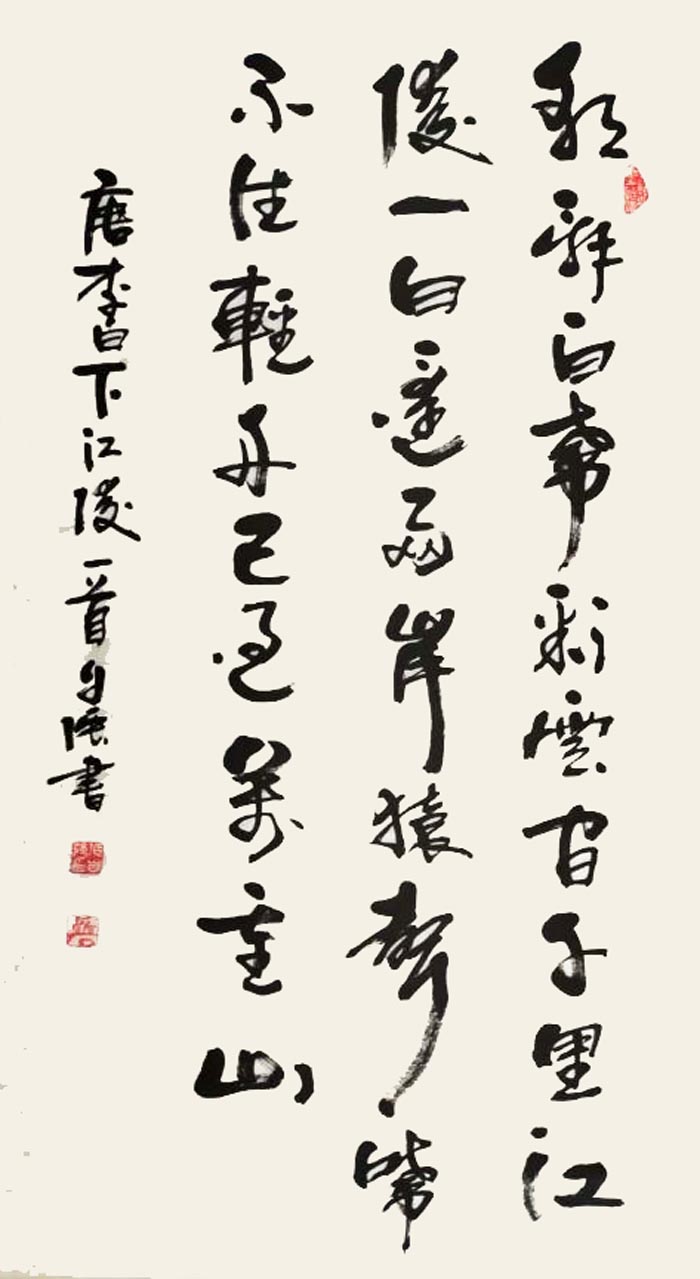 朝辭白帝彩雲間千里江
陵一日還兩岸猿聲啼
不住輕舟已過萬重山
唐李白下江陵一首書